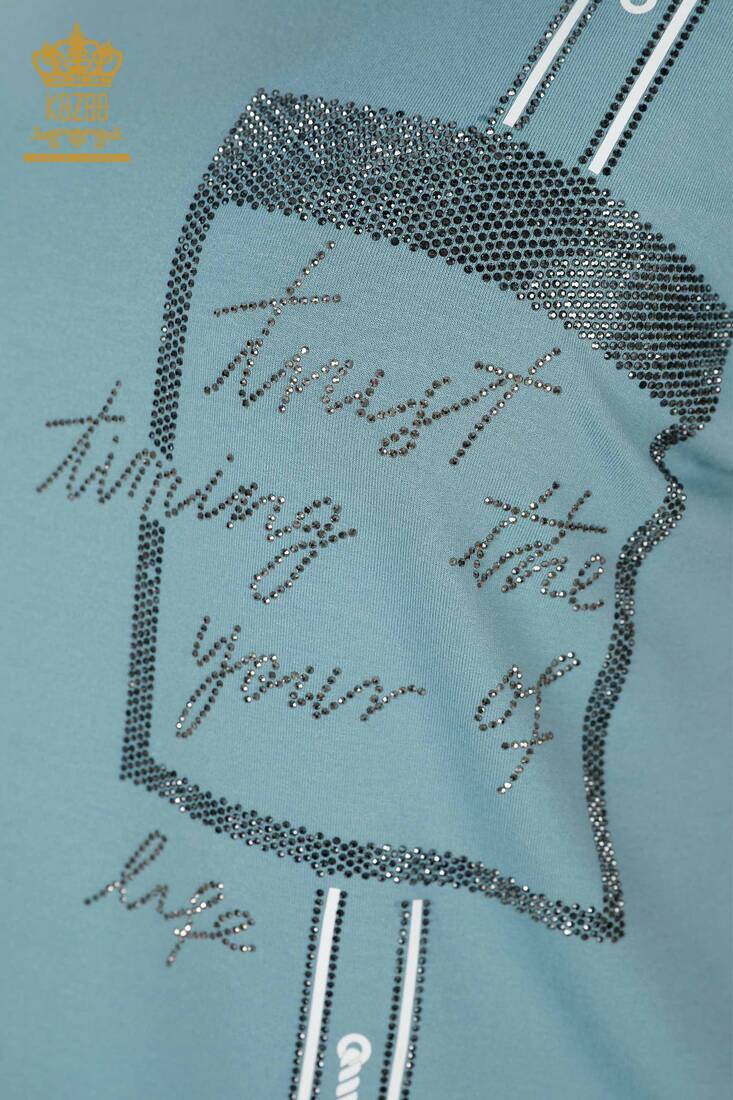 KAZEE
trust
timing the
your of
life